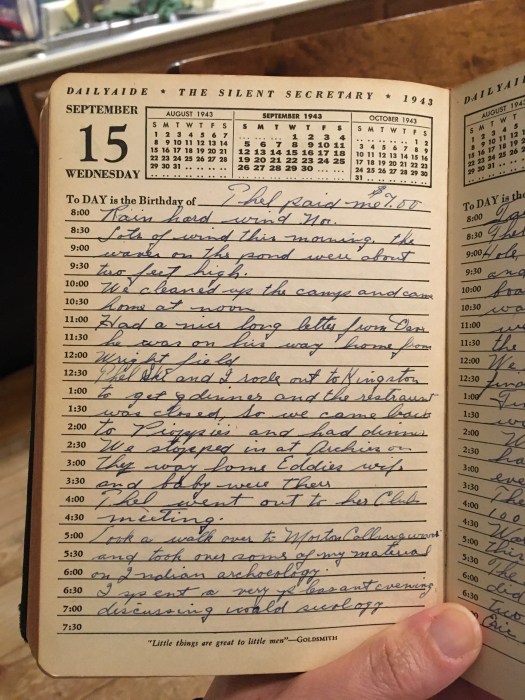 DAILYAIDE ★ THE SILENT SECRETARY ★ 1943
SEPTEMBER
15
WEDNESDAY
AUGUST 1943
S M T W T F S
1 2 3 4 5 6 7
8 9 10 11 12 13 14
15 16 17 18 19 20 21
22 23 24 25 26 27 28
29 30 31
SEPTEMBER 1943
S M T W T F S
1 2 3 4
5 6 7 8 9 10 11
12 13 14 15 16 17 18
19 20 21 22 23 24 25
26 27 28 29 30
OCTOBER 1943
S M T W T F S
1 2
3 4 5 6 7 8 9
10 11 12 13 14 15 16
17 18 19 20 21 22 23
24 25 26 27 28 29 30
31
To DAY is the Birthday of Phel paid me $9.00
8:00 Rain hard wind No.
8:30 Lots of wind this morning. the
9:00 waves on the pond were about
9:30 two feet high.
10:00 We cleaned up the camp and came
10:30 home at noon
11:00 Had a nice long letter from
11:30 he was on his way home from
12:00 Wright field
12:30 Phel and I rode out to Kingston
1:00 to get a dinner and the restraunt
1:30 was closed, so we came back
2:00 to and had dinner
2:30 We stopped in at Archies on
3:00 they way home Eddies wife
3:30 and baby were there
4:00 Phel went out to her Club
4:30 meeting.
5:00 Took a walk over to
5:30 and took over some of my material
6:00 on Indian archeology.
6:30 I spent a very pleasant evening
7:00 discussing world
7:30
"Little things are great to little men"—GOLDSMITH